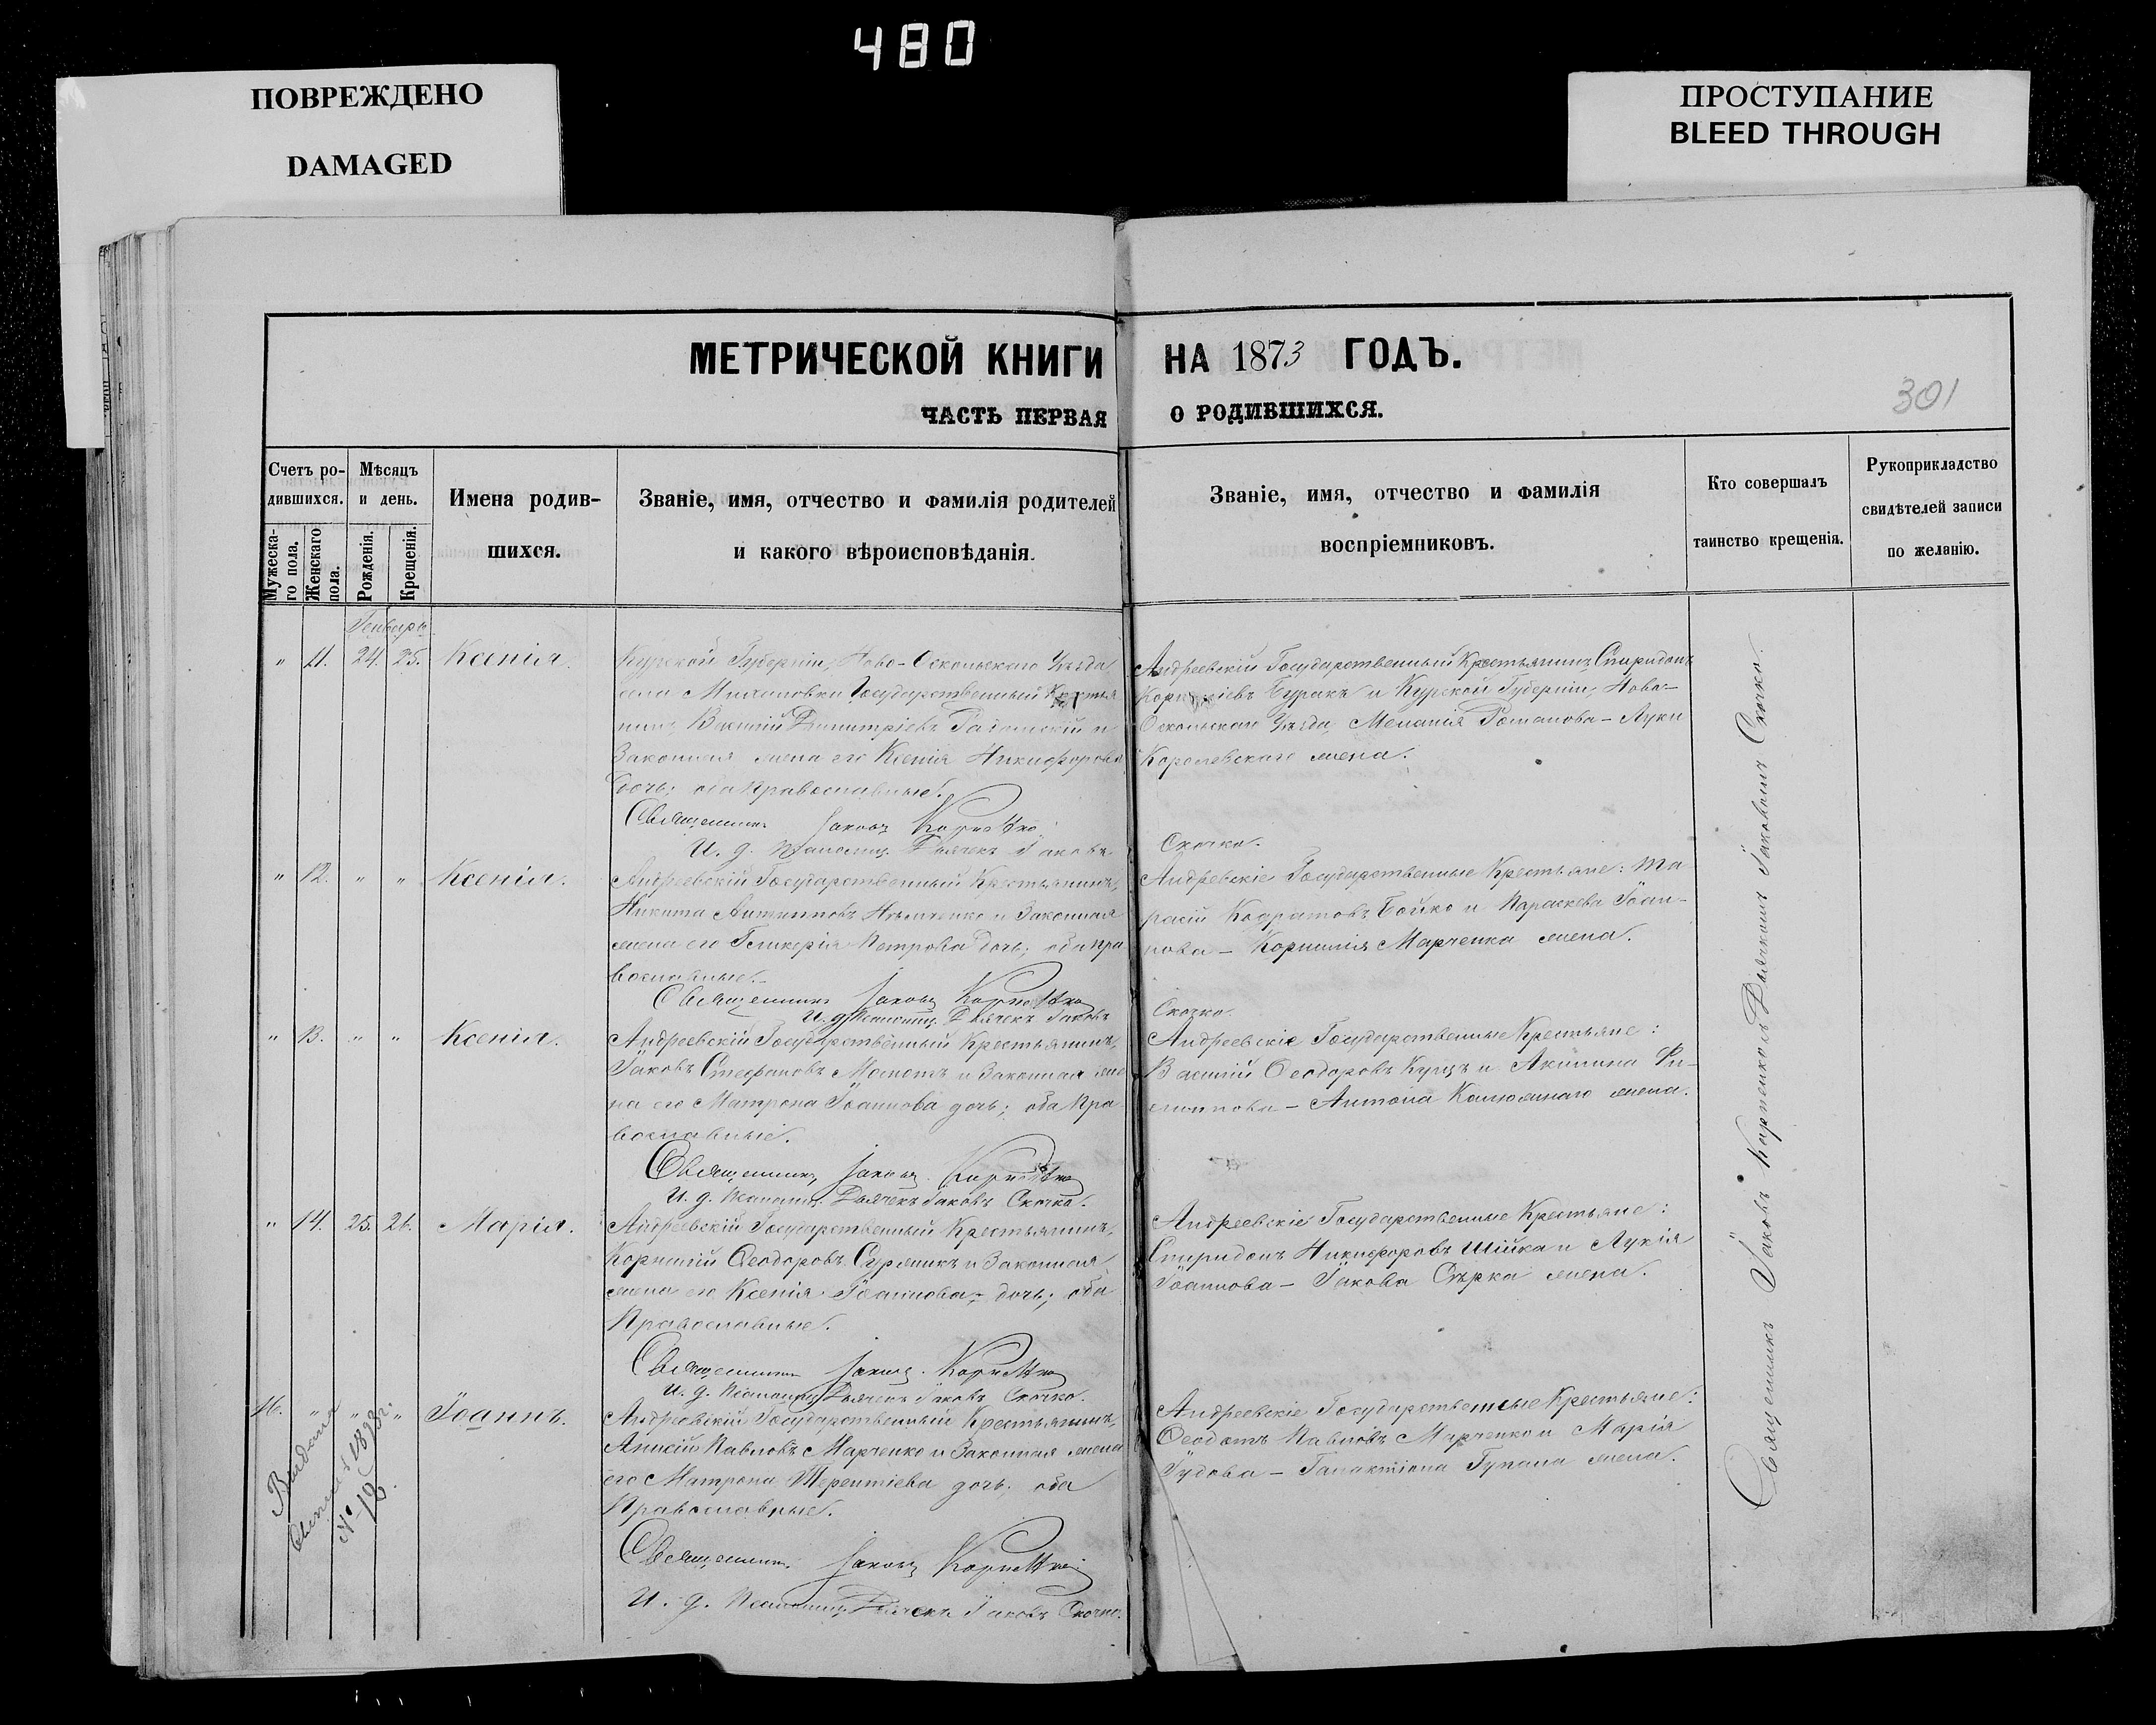 480
ПОВРЕЖДЕНО
DAMAGED
ПРОСТУПАНИЕ
BLEED THROUGH
МЕТРИЧЕСКОЙ КНИГИ НА 1873 ГОДЪ.
ЧАСТЬ ПЕРВАЯ О РОДИВШИХСЯ.
301
Счетъ ро-
дившихся.
Мужеска-
го пола.
Женскаго
пола.
Мѣсяцъ
и день.
Рожденія.
Крещенія.
Имена родив-
шихся.
Званіе, имя, отчество и фамилія родителей
и какого вѣроисповѣданія.
Званіе, имя, отчество и фамилія
воспріемниковъ.
Кто совершалъ
таинство крещенія.
Рукоприкладство
свидѣтелей записи
по желанію.
Генваря
" 11. 24. 25. Ксенія.
Курской Губерніи, Ново-Оскольскаго Уѣзда
села Государственный
Василій Димитріевъ и
Законная жена его Ксенія Никифорова
дочь; оба православные.
Священникъ Іаковъ
И. д. Дьячекъ Іаковъ
Скочко.
Андреевскій Государственный Крестьянинъ Спиридонъ
Буракъ и Курской Губерніи, Ново-
Оскольскаго Уѣзда, Меланія Романова – Луки
Королевскаго жена.
" 12. " " Ксенія.
Андреевскій Государственный Крестьянинъ,
Никита Антиповъ и Законная
жена его Гликерія Петрова дочь; оба пра
вославные.
Священникъ Іаковъ
И. д. Дьячекъ Іаковъ
Скочко.
Андреевскіе Государственные Крестьяне: Та
расій Кодратовъ Бойко и Параскева Іоан-
нова – Корнилія Марченка жена.
" 13. " " Ксенія.
Андреевскій Государственный Крестьянинъ,
Іаковъ Стефановъ и Законная же
на его Матрона Іоаннова дочь; оба пра
вославные.
Священникъ Іаковъ
И. д. Дьячекъ Іаковъ Скочко.
Андреевскіе Государственные Крестьяне:
Василій Ѳеодоровъ Куцъ и Акилина Фи-
липпова – Антонія жена.
" 14. 25. 26. Марія.
Андреевскій Государственный Крестьянинъ,
Корнилій Ѳеодоровъ и Законная
жена его Ксенія Іоаннова дочь; оба
Православные.
Священникъ Іаковъ
И. д. Дьячекъ Іаковъ Скочко.
Андреевскіе Государственные Крестьяне:
Спиридонъ Никифоровъ Шійка и Лукія
Іоаннова – Іакова Сѣрка жена.
16. " " " Іоаннъ.
Андреевскій Государственный Крестьянинъ,
Анисій Павловъ Марченко и Законная жена
его Матрона Терентіева дочь; оба
Православные.
Священникъ Іаковъ
И. д. Дьячекъ Іаковъ Скочко.
Андреевскіе Государственные Крестьяне:
Ѳеодотъ Павловъ Марченко и Марія
Іудова – Галактіона жена.
Выдана
1893 г.
№ 12.
Священникъ Іаковъ съ Дьячкомъ Іаковомъ Скочко.